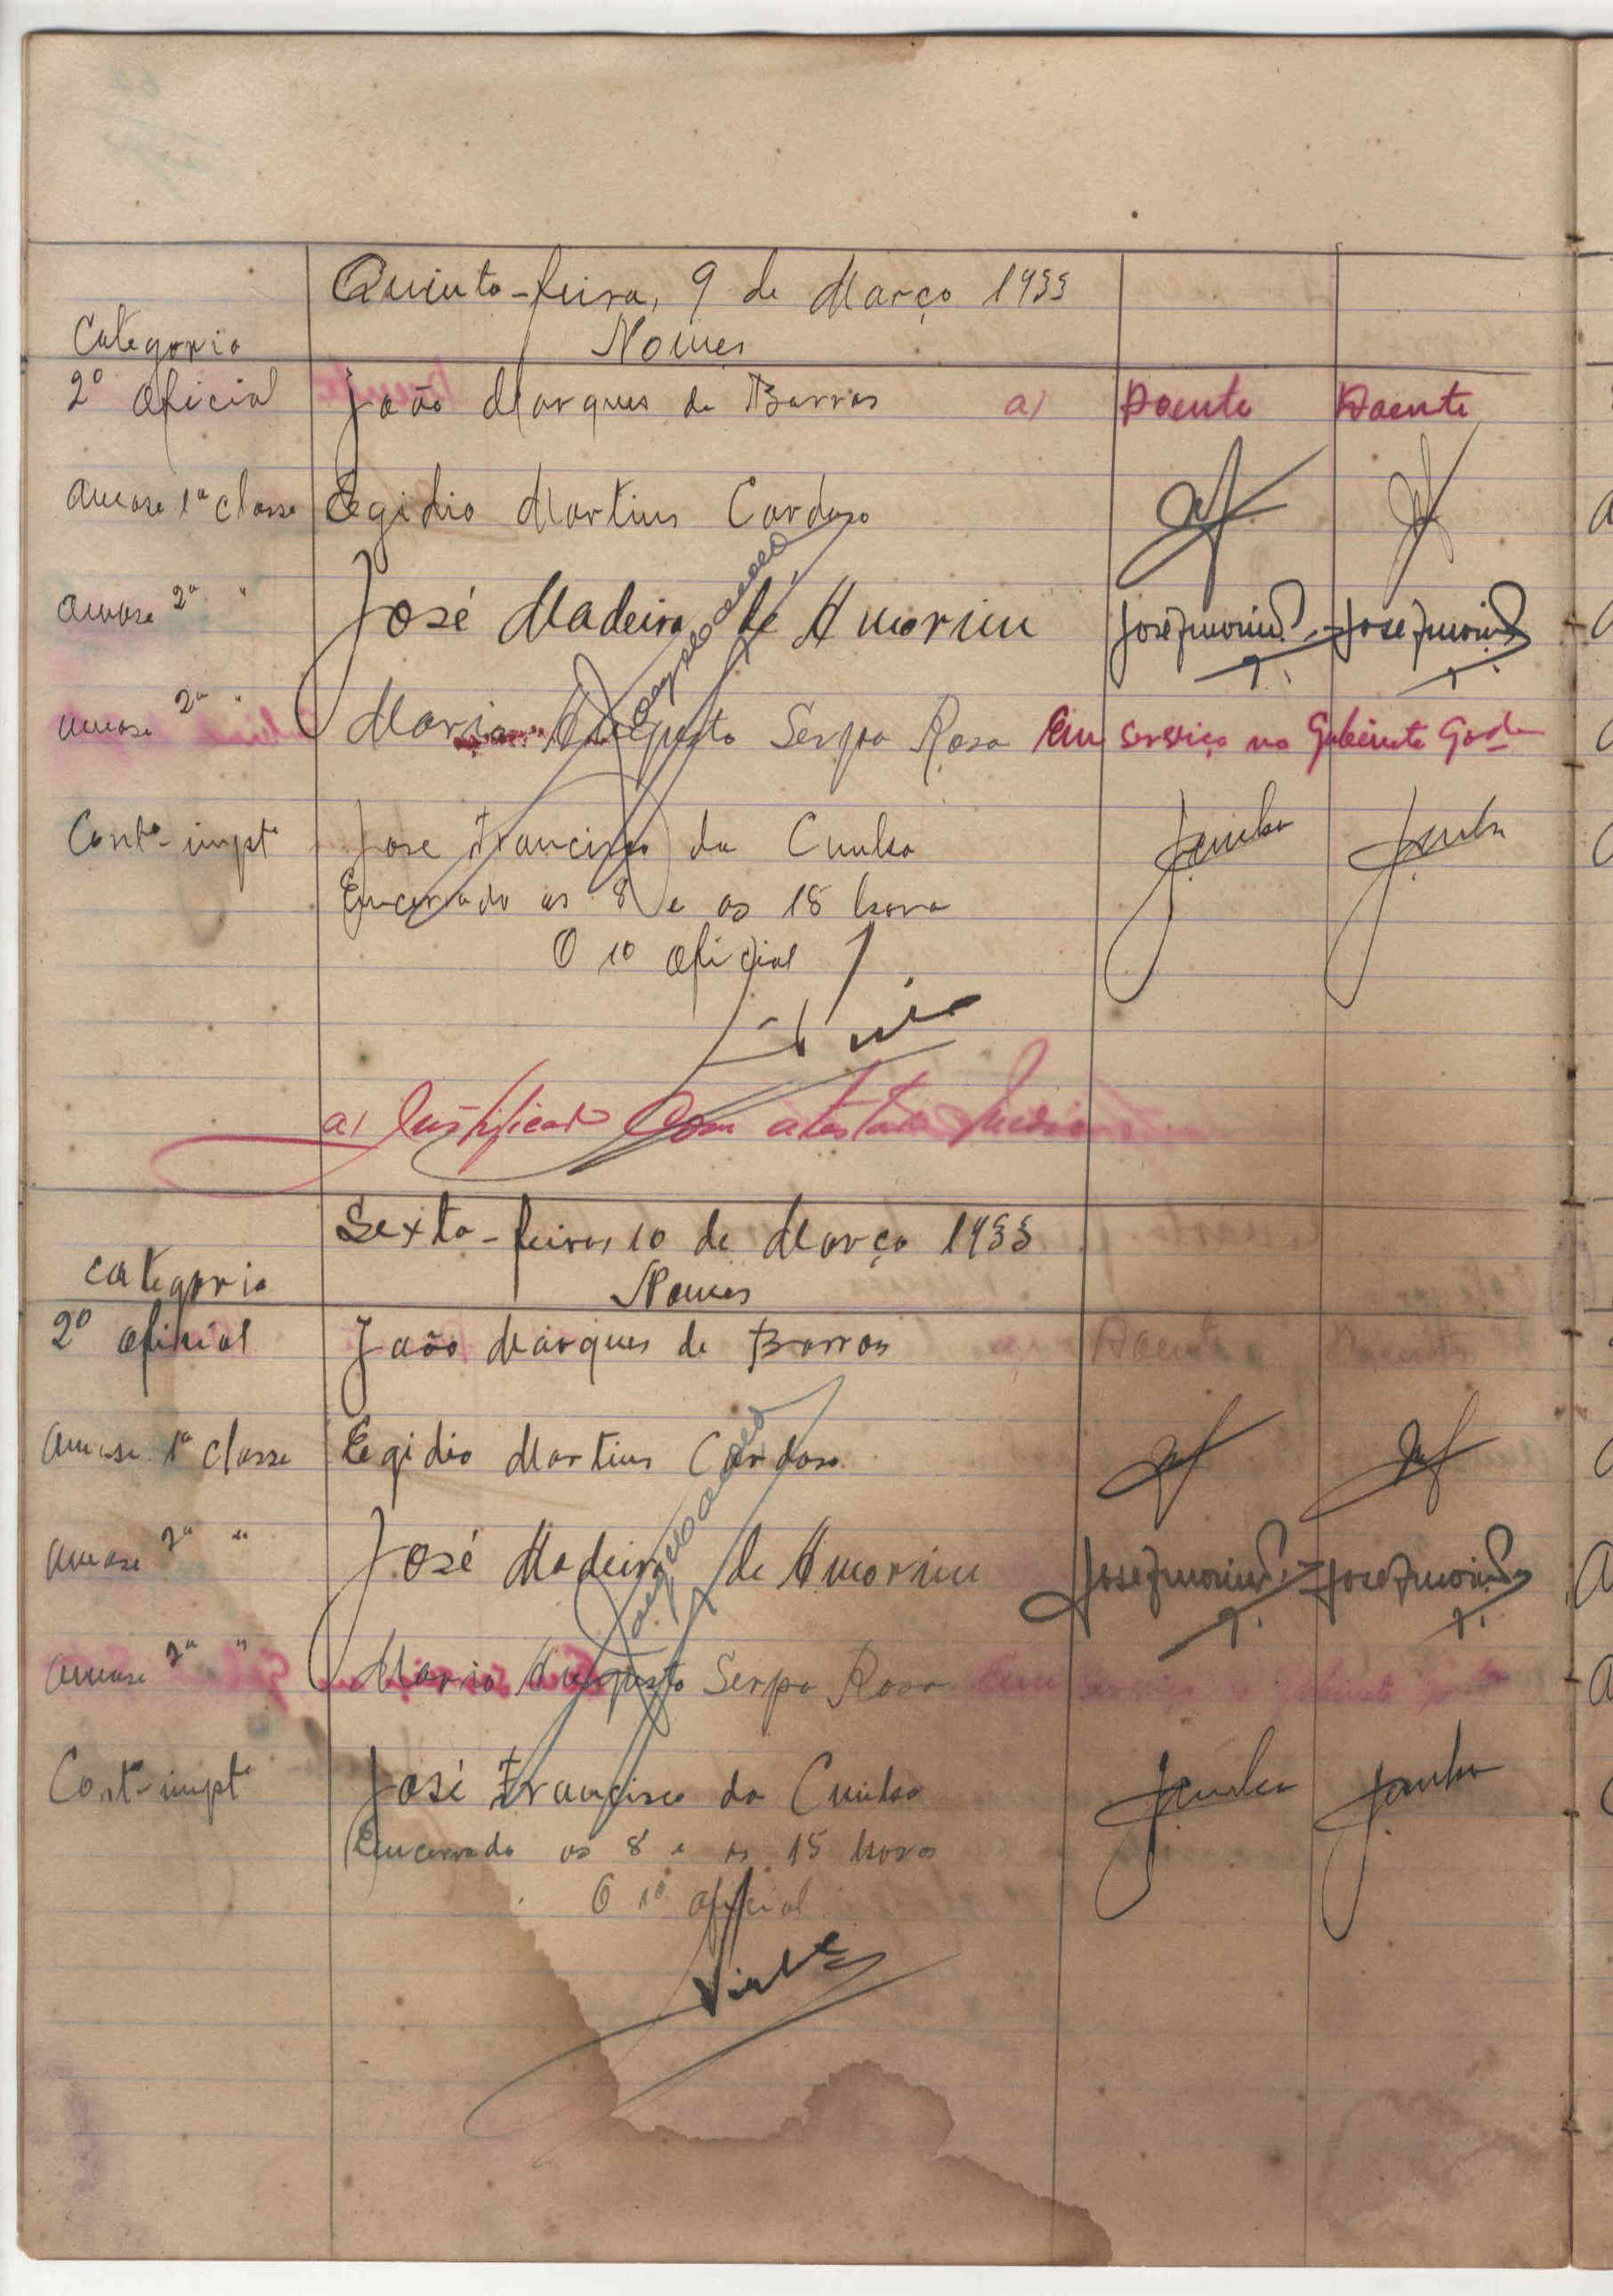 Quinta-feira, 9 de Março 1933
Categoria Nomes
2º Oficial João Marques de Barros a) Doente Doente
1ª classe Egidio Martins Cardoso
2ª " José Madeira de Amorim José Amorim José Amorim
2ª " Mario Augusto Serpa Rosa Em serviço no Gabinete
Cont. impt José Francisco da Cunha JCunha JCunha
Encerrado as 8 e as 15 horas
O 1º Oficial
a) Justificado com atestado
Sexta-feira, 10 de Março 1933
Categoria Nomes
2º Oficial João Marques de Barros a) Doente Doente
1ª classe Egidio Martins Cardoso
2ª " José Madeira de Amorim José Amorim José Amorim
2ª " Mario Augusto Serpa Rosa Em serviço
Cont. impt José Francisco da Cunha JCunha JCunha
Encerrado as 8 e as 15 horas
O 1º Oficial